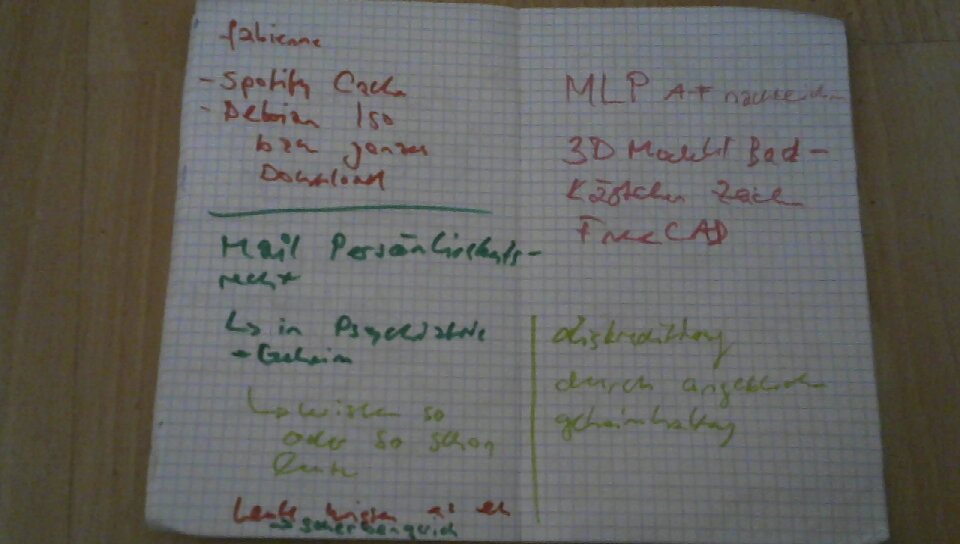 fabienne
- Spotify Cache
- Debian Iso
bzw ganzer
Download
Mail Persönlichkeits-
recht
↳ in Psychiatrie
+ Geheim
↳ wissen so
oder so schon
Leute
Leute wissen es eh
MLP
3D Modell Bad-
Kästchen Zeich
FreeCAD
diskreditierung
durch angebliche
geheimhaltung